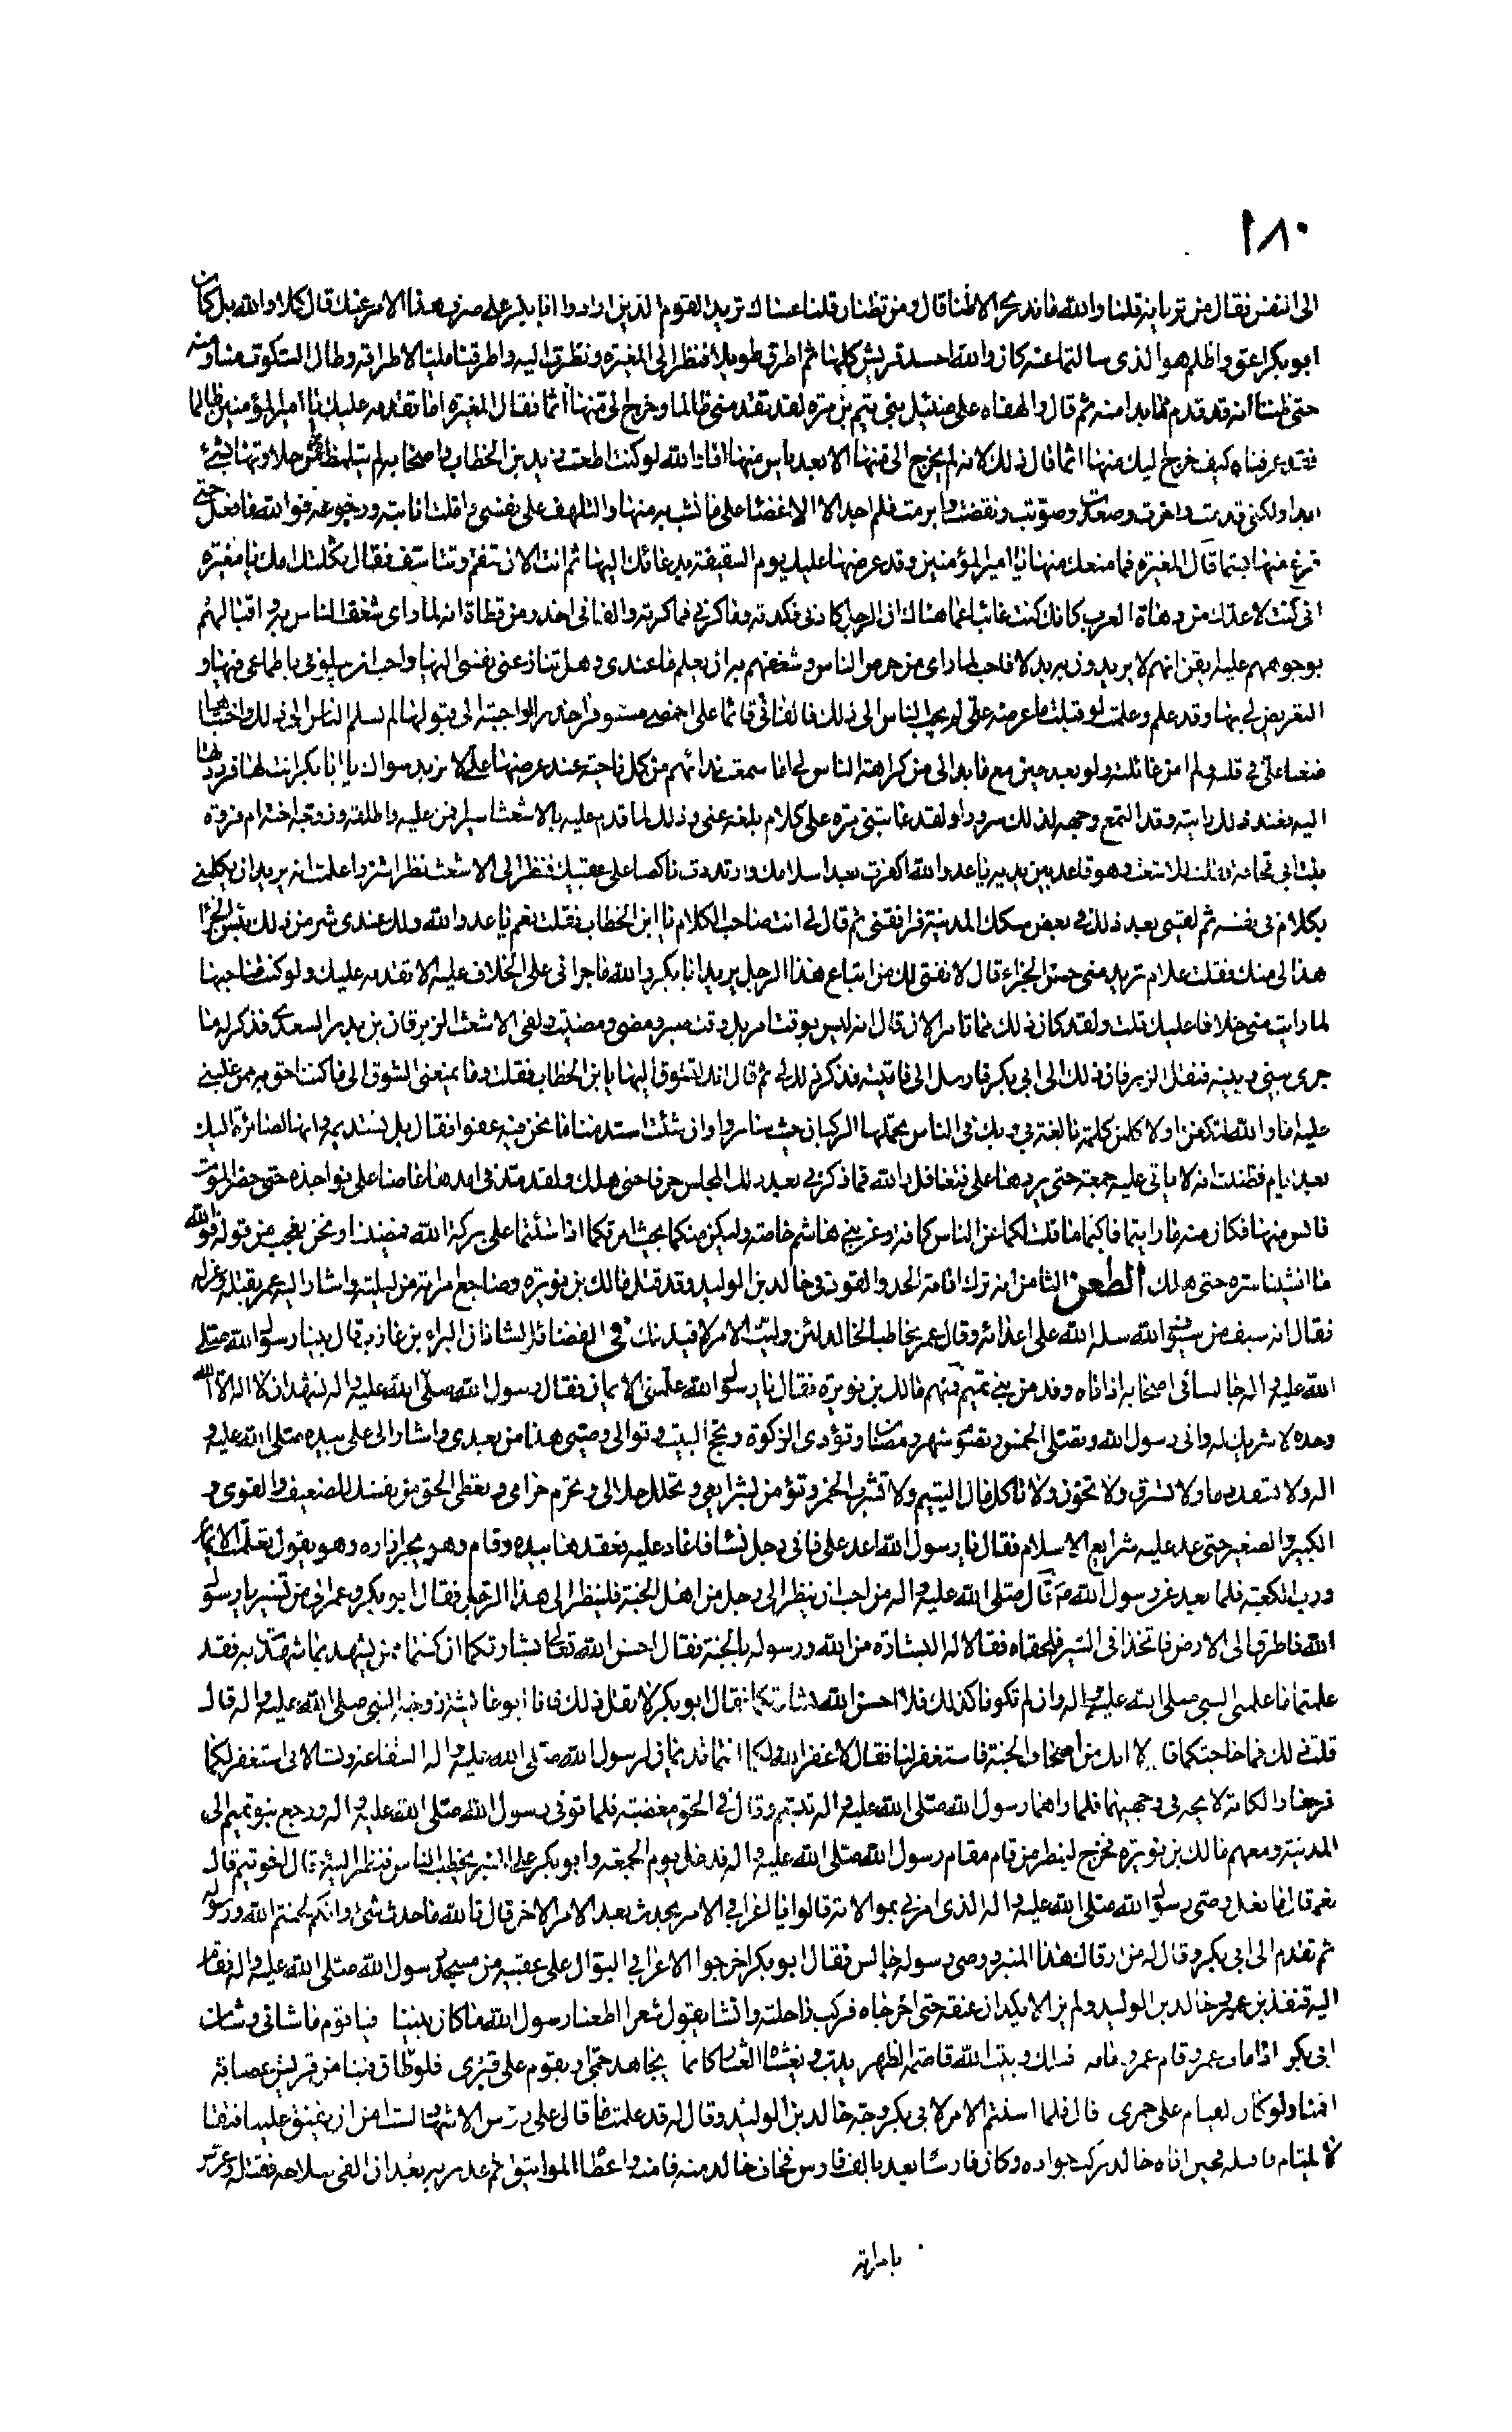 ١٨٠
الى انفس فقال من تريانه قلنا والله ما ندرى الا ظنا قال ومن تظنان قلنا عساك تريد القوم الذين ارادوا ابا بكر على صرف هذا الامر عنك قال كلا والله بل كان
ابو بكر اعق واظلم هو الذى سالتما عنه كان والله احسد قريش كلها ثم اطرق طويلا فنظر الى المغيرة ونظرت اليه واطرقنا مليا لاطراقه وطال السكوت منا ومنه
حتى ظننا انه قد ندم مما بدا منه ثم قال والهفاه على ضئيل بنى تيم بن مره لقد تقدمنى ظالما وخرج الى منها اثما فقال المغيره اما تقدمه عليك يا امير المؤمنين ظالما
فقد عرفناه كيف خرج اليك منها اثما قال ذلك لانه لم يخرج الى منها الا بعد ياس منها اما والله لو كنت اطعت زيد بن الخطاب واصحابه لم يتلمظ من حلاوتها بشئ
ابدا ولكنى قدمت واخرت وصعدت وصوبت ونقضت وابرمت فلم اجد الا الاغضاء على ما نشب به منها والتلهف على نفسى واملت انابته ورجوعه فوالله ما فعل حتى
فرغ منها بشما قال المغيره فما منعك منها يا امير المؤمنين وقد عرضها عليك يوم السقيفه بدعائك اليها ثم انت الان تنقم وتتاسف فقال ثكلتك امك يا مغيره
انى كنت لاعدك من دهاة العرب كانك كنت غائبا عما هناك ان الرجل كادنى فكدته وماكرنى فماكرته والفانى احذر من قطاة انه لما راى شغف الناس به واقبالهم
بوجوههم عليه ايقن انهم لا يريدون به بدلا فاحب لما راى من حرص الناس وشغفهم به ان يعلم ما عندى وهل تنازعنى نفسى اليها واحب ان يبلونى باطماعى فيها و
التعريض لى بها وقد علم وعلمت لو قبلت ما عرضه على لم يجب الناس الى ذلك فالفانى قائما على اخمصى مستوفزا حذرا ولو اجبته الى قبولها لم يسلم الناس الى ذلك واختباها
ضغنا على فى قلبه ولم امن غائلته ولو بعد حين مع ما بدا لى من كراهة الناس لى اما سمعت نداءهم من كل ناحية عند عرضها على لا نريد سواك يا ابا بكر انت لها فرددتها
اليه فعند ذلك رايته وقد التمع وجهه لذلك سرورا ولقد عاتبنى مره على كلام بلغه عنى وذلك لما قدم عليه بالاشعث اسيرا فمن عليه واطلقه وزوجه اخته ام فروه
بنت ابى قحافه فقلت للاشعث وهو قاعد بين يديه يا عدو الله اكفرت بعد اسلامك وارتددت ناكصا على عقبيك فنظر الى الاشعث نظرا شزرا علمت انه يريد ان يكلمنى
بكلام فى نفسه ثم لقينى بعد ذلك فى بعض سكك المدينه فرافقنى ثم قال لى انت صاحب الكلام يا ابن الخطاب فقلت نعم يا عدو الله ولك عندى شر من ذلك فقال بئس الجزاء
هذا لى منك فقلت علام تريد منى حسن الجزاء قال لانفتى لك من اتباع هذا الرجل يريد ابا بكر والله ما جرانى على الخلاف عليه الا تقدمه عليك ولو كنت صاحبها
لما رايت منى خلافا عليك قلت ولقد كان ذلك فما تامر الان قال انه ليس بوقت امر بل وقت صبر ومضى ومضيت ولقى الاشعث الزبرقان بن بدر السعدى فذكر له ما
جرى بينى وبينه فنقل الزبرقان ذلك الى ابى بكر فارسل الى فاتيته فذكر ذلك لى ثم قال انك لتشوق اليها يا بن الخطاب فقلت وما يمنعنى الشوق الى ما كنت احق به ممن غلبنى
عليه اما والله لتكفن او لاكلمن كلمة بالغة بى وبك فى الناس يحملها الركبان حيث ساروا وان شئت استدمنا ما نحن فيه عفوا فقال بل نستديمه وانها لصائرة اليك
بعد ايام فظننت انه لا ياتى عليه جمعه حتى يردها على فتغافل والله فما ذكرنى بعد ذلك المجلس حرفا حتى هلك ولقد مد فى امدها عاضا على نواجذه حتى حضره الموت
فايس منها فكان منه ما رايتما فاكتما ما قلت لكما عن الناس كافه وعن بنى هاشم خاصه وليكن منكما بحيث امرتكما اذا شئتما على بركة الله فمضينا ونحن نعجب من قوله فوالله
ما افشينا سره حتى هلك الطعن الثامن انه ترك اقامة الحد والقود فى خالد بن الوليد وقد قتل مالك بن نويره وضاجع امراته من ليلته واشار اليه عمر بقتله وعزله
فقال انه سيف من سيوف الله سله الله على اعدائه وقال عمر مخاطبا لخالد لئن وليت الامر لاقيدنك فى الفضائل لشاذان البراء بن عازب قال بينا رسول الله صلى
الله عليه واله جالسا فى اصحابه اذ اتاه وفد من بنى تميم منهم مالك بن نويره فقال يا رسول الله علمنى الايمان فقال رسول الله صلى الله عليه واله تشهد ان لا اله الا الله
وحده لا شريك له وانى رسول الله وتصلى الخمس وتصوم شهر رمضان وتؤدى الزكوة وتحج البيت وتوالى وصيى هذا من بعدى واشار الى على بيده صلى الله عليه و
اله ولا تسفك دما ولا تسرق ولا تخون ولا تاكل مال اليتيم ولا تشرب الخمر وتؤمن بشرايعى وتحلل حلالى وتحرم حرامى وتعطى الحق من نفسك للضعيف والقوى و
الكبير والصغير حتى عد عليه شرايع الاسلام فقال يا رسول الله اعد على فانى رجل نساء فاعاد عليه فعقدها بيده وقام وهو يجر ازاره وهو يقول تعلمت الايمان
ورب الكعبه فلما بعد عن رسول الله ص قال صلى الله عليه واله من احب ان ينظر الى رجل من اهل الجنة فلينظر الى هذا الرجل فقال ابو بكر وعمر الى من تشير يا رسول
الله فاطرق الى الارض فاتخذا فى السير فلحقاه فقالا له البشارة من الله ورسوله بالجنة فقال احسن الله تعالى بشارتكما ان كنتما ممن يشهد بما شهدت به فقد
علمتما ما علمنى النبى صلى الله عليه واله وان لم تكونا كذلك فلا احسن الله بشارتكما فقال ابو بكر لا تقل ذلك فانا ابو عائشة زوجة النبى صلى الله عليه واله قال
قلت ذلك فما حاجتكما قالا انك من اصحاب الجنة فاستغفر لنا فقال لا غفر الله لكما انتما نديمان لرسول الله صلى الله عليه واله الشفاعه وتسالانى استغفر لكما
فرجعا والكابة لائحة فى وجهيهما فلما راهما رسول الله صلى الله عليه واله تبسم وقال فى الحق مغضبه فلما توفى رسول الله صلى الله عليه واله ورجع بنو تميم الى
المدينه ومعهم مالك بن نويره فخرج لينظر من قام مقام رسول الله صلى الله عليه واله فدخل يوم الجمعه وابو بكر على المنبر يخطب الناس فنظر اليه وقال اخو تيم قالوا
نعم قال فما فعل وصى رسول الله صلى الله عليه واله الذى امرنى بموالاته قالوا يا اعرابى الامر يحدث بعد الامر الاخر قال تالله ما حدث شئ وانكم لخنتم الله ورسوله
ثم تقدم الى ابى بكر وقال له من ارقاك هذا المنبر ووصى رسوله جالس فقال ابو بكر اخرجوا الاعرابى البوال على عقبيه من مسجد رسول الله صلى الله عليه واله فقام
اليه قنفذ بن عمير وخالد بن الوليد ولم يزالا يكدان عنقه حتى اخرجاه فركب راحلته وانشا يقول شعرا اطعنا رسول الله ما كان بيننا فيا قوم ما شانى وشان
ابى بكر اذا مات عمرو قام عمرو مقامه فتلك وبيت الله قاصمة الظهر يدب ويغشاه العشار كانما يجاهد جما او يقوم على قبرى فلو طاق فينا من قريش عصابة
اقمنا ولو كان القيام على جمرى قال فلما استتم الامر لابى بكر وجه خالد بن الوليد وقال له قد علمت ما قال على رؤس الاشهاد لست امن ان يفتق علينا فتقا
لا يلتام فاقتله فحين اتاه خالد ركب جواده وكان فارسا يعد بالف فارس فخاف خالد منه فامنه واعطاه المواثيق ثم غدر به بعد ان القى سلاحه فقتله وعرس
بامراته